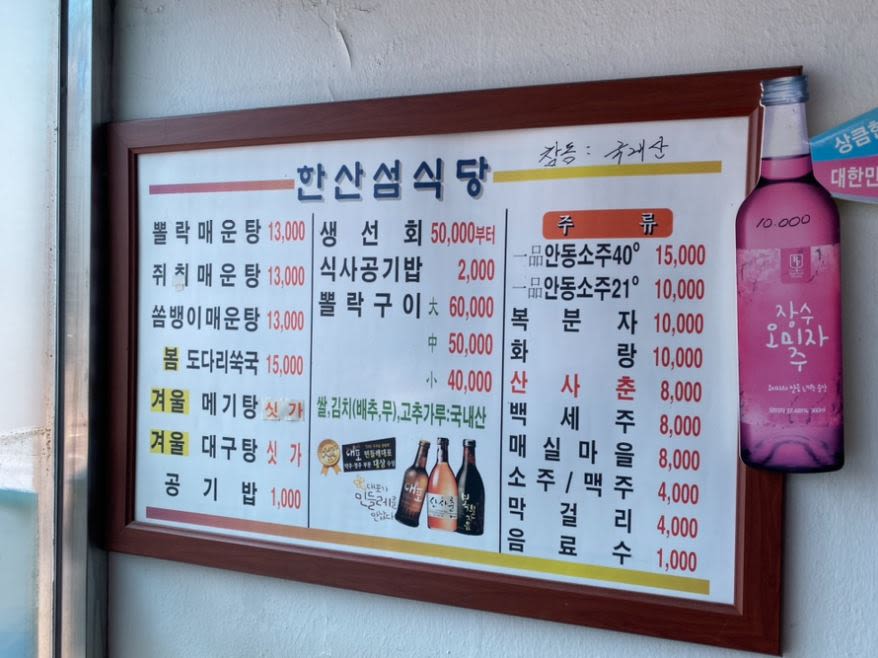 한산섬식당
참돔 : 국내산
뽈락매운탕 13,000
쥐칫매운탕 13,000
쏨뱅이매운탕 13,000
봄 도다리쑥국 15,000
겨울 메기탕 싯가
겨울 대구탕 싯가
공기밥 1,000
생선회 50,000부터
식사공기밥 2,000
뽈락구이 大 60,000
中 50,000
小 40,000
쌀,김치(배추,무),고추가루:국내산
대포
민들레대포
대상
민들레를
대포
산사춘
주류
一品안동소주40º 15,000
一品안동소주21º 10,000
복분자 10,000
화랑 10,000
산사춘 8,000
백세주 8,000
매실마을 8,000
소주/맥주 4,000
막걸리 4,000
음료수 1,000
10.000
장수
오미자
주
상큼한
대한민